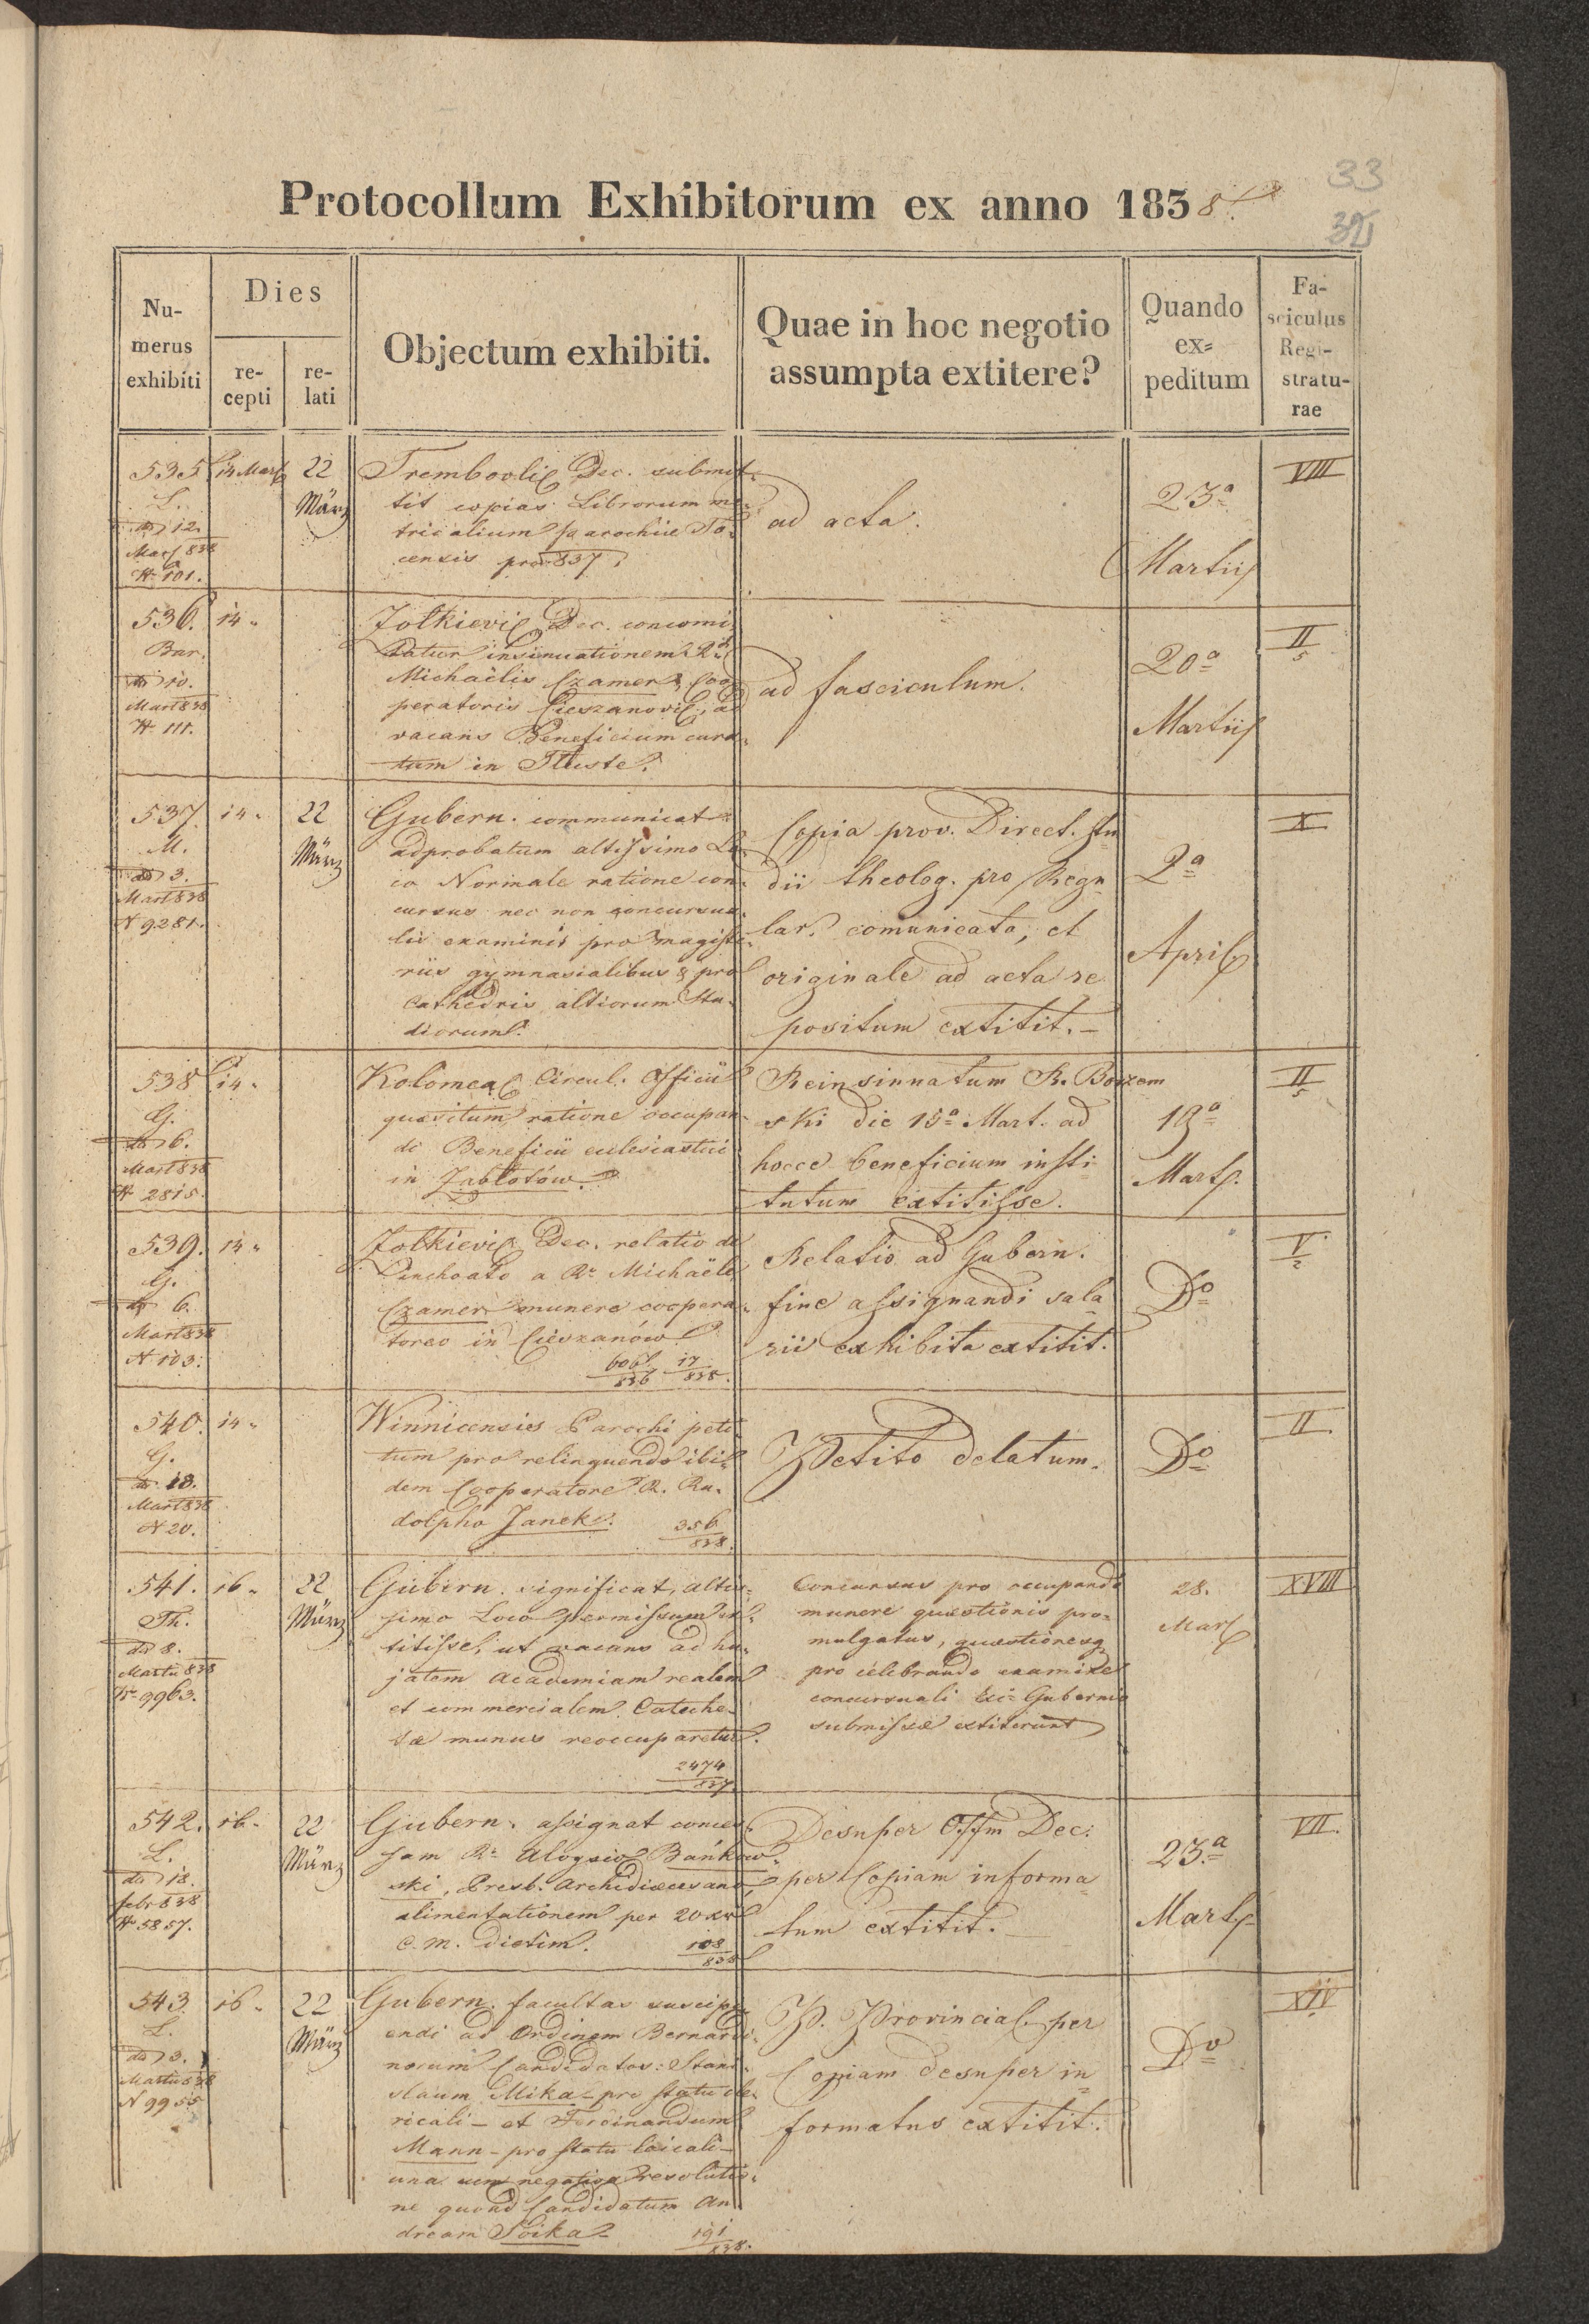 33
32
Protocollum Exhibitorum ex anno 1838
Numerus exhibiti
Dies
recepti
relati
Objectum exhibiti.
Quae in hoc negotio assumpta extitere?
Quando expeditum
Fasciculus Registraturae
535
L.
dto 12.
Mart 838
N 101.
14 Mart
22
März
Trembovli Dec. submit-
tit copias Librorum ma-
tricalium parochiæ To-
censis pro 837.
ad acta.
23a
Martii
VIII
536.
Bar.
dto 10.
Mart 838
N 111.
14 "
Zolkievi Dec. concomi-
tatur insinuationem Rdi
Michaëlis Czamer, Coo-
peratoris Cieszanovi, ad
vacans Beneficium cura-
tum in Tluste.
ad fasciculum.
20a
Martii
II
5
537.
M.
dto 3.
Mart 838
N 9281.
14 "
22
März
Gubern. communicat
adprobatum altissimo Lo-
co Normale ratione con-
cursus nec non concursua-
lis examinis pro magiste-
riis gymnasialibus & pro
Cathedris altiorum Stu-
diorum.
Copia prov. Direct. stu
dii theolog. pro Regu
lar. comunicata, et
originale ad acta re
positum extitit. –
2a
April
X
538
G.
dto 6.
Mart 838
N 2815.
14 "
Kolomea Circul. Officii
quæsitum ratione occupan-
di Beneficii ecclesiastici
in Zablotów.
Reinsinuatum R. Borzem
ski die 15a Mart. ad
hocce beneficium insti-
tutum extitisse.
19a
Mart.
II
5
539.
G.
dto 6.
Mart 838
N 103.
14 "
Zolkievi Dec. relatio de
inchoato a Re Michaële
Czamer munere coopera-
toreo in Cieszanów
606
836
17
838.
Relatio ad Gubern.
fine assignandi sala
rii exhibita extitit.
Do
V
2
540.
G.
dto 10.
Mart 838
N 20.
14 "
Winnicensis Parochi peti-
tum pro relinquendo ibi-
dem Cooperatore R. Ru-
dolpho Janek.
356
838.
Petito delatum.
Do
II.
541.
Th.
dto 8.
Martii 838
No 9963.
16 "
22
März
Gubern. significat, altis-
simo Loco permissum ex-
titisse, ut vacans ad hu-
jatem Academiam realem
et commercialem Cateche-
tæ munus reoccuparetur.
2474
837.
Concursus pro occupando
munere quæstionis pro-
mulgatus, quæstionesq
pro celebrando examine
concursuali Exc. Gubernio
submissæ extiterunt
28.
Mart
XVIII
542.
L.
dto 18.
febr 838
N 5857.
16 "
22
März
Gubern. assignat conces-
sam Ro Aloysio Bańkow-
ski, Presb. Archidiœcesano,
alimentationem per 20 xr
C. M. dietim.
108
838
Desuper Offm Dec:
per Copiam informa
tum extitit.
23.a
Mart.
VII.
543.
L.
dto 3.
Martii 838
N 9955
16 "
22
März
Gubern. facultas suscipi-
endi ad Ordinem Bernardi-
norum Candidatos: Stani-
slaum Mika – pro statu cle-
ricali – et Ferdinandum
Mann – pro statu laicali –
una cum negativa resolutio-
ne quoad Candidatum An-
dream Soika
191
838.
P. Provincial. per
Copiam desuper in
formatus extitit.
Do
XIV